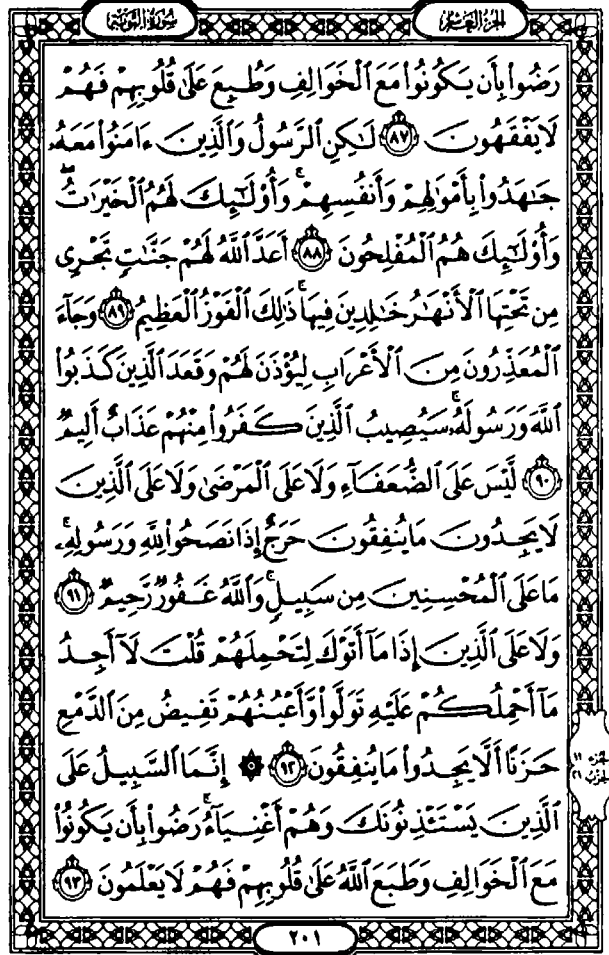 سُورَةُ التَّوْبَةِ
الجُزْءُ العَاشِرُ
رَضُوا۟ بِأَن يَكُونُوا۟ مَعَ ٱلْخَوَالِفِ وَطُبِعَ عَلَىٰ قُلُوبِهِمْ فَهُمْ
لَا يَفْقَهُونَ ٨٧ لَٰكِنِ ٱلرَّسُولُ وَٱلَّذِينَ ءَامَنُوا۟ مَعَهُۥ
جَٰهَدُوا۟ بِأَمْوَٰلِهِمْ وَأَنفُسِهِمْ ۚ وَأُو۟لَٰٓئِكَ لَهُمُ ٱلْخَيْرَٰتُ ۖ
وَأُو۟لَٰٓئِكَ هُمُ ٱلْمُفْلِحُونَ ٨٨ أَعَدَّ ٱللَّهُ لَهُمْ جَنَّٰتٍ تَجْرِى
مِن تَحْتِهَا ٱلْأَنْهَٰرُ خَٰلِدِينَ فِيهَا ۚ ذَٰلِكَ ٱلْفَوْزُ ٱلْعَظِيمُ ٨٩ وَجَآءَ
ٱلْمُعَذِّرُونَ مِنَ ٱلْأَعْرَابِ لِيُؤْذَنَ لَهُمْ وَقَعَدَ ٱلَّذِينَ كَذَبُوا۟
ٱللَّهَ وَرَسُولَهُۥ ۚ سَيُصِيبُ ٱلَّذِينَ كَفَرُوا۟ مِنْهُمْ عَذَابٌ أَلِيمٌ
٩٠ لَّيْسَ عَلَى ٱلضُّعَفَآءِ وَلَا عَلَى ٱلْمَرْضَىٰ وَلَا عَلَى ٱلَّذِينَ
لَا يَجِدُونَ مَا يُنفِقُونَ حَرَجٌ إِذَا نَصَحُوا۟ لِلَّهِ وَرَسُولِهِۦ ۚ
مَا عَلَى ٱلْمُحْسِنِينَ مِن سَبِيلٍ ۚ وَٱللَّهُ غَفُورٌ رَّحِيمٌ ٩١
وَلَا عَلَى ٱلَّذِينَ إِذَا مَآ أَتَوْكَ لِتَحْمِلَهُمْ قُلْتَ لَآ أَجِدُ
مَآ أَحْمِلُكُمْ عَلَيْهِ تَوَلَّوا۟ وَّأَعْيُنُهُمْ تَفِيضُ مِنَ ٱلدَّمْعِ
حَزَنًا أَلَّا يَجِدُوا۟ مَا يُنفِقُونَ ٩٢ ۞ إِنَّمَا ٱلسَّبِيلُ عَلَى
ٱلَّذِينَ يَسْتَـْٔذِنُونَكَ وَهُمْ أَغْنِيَآءُ ۚ رَضُوا۟ بِأَن يَكُونُوا۟
مَعَ ٱلْخَوَالِفِ وَطَبَعَ ٱللَّهُ عَلَىٰ قُلُوبِهِمْ فَهُمْ لَا يَعْلَمُونَ ٩٣
الجزء ١١
الحزب ٢١
٢٠١